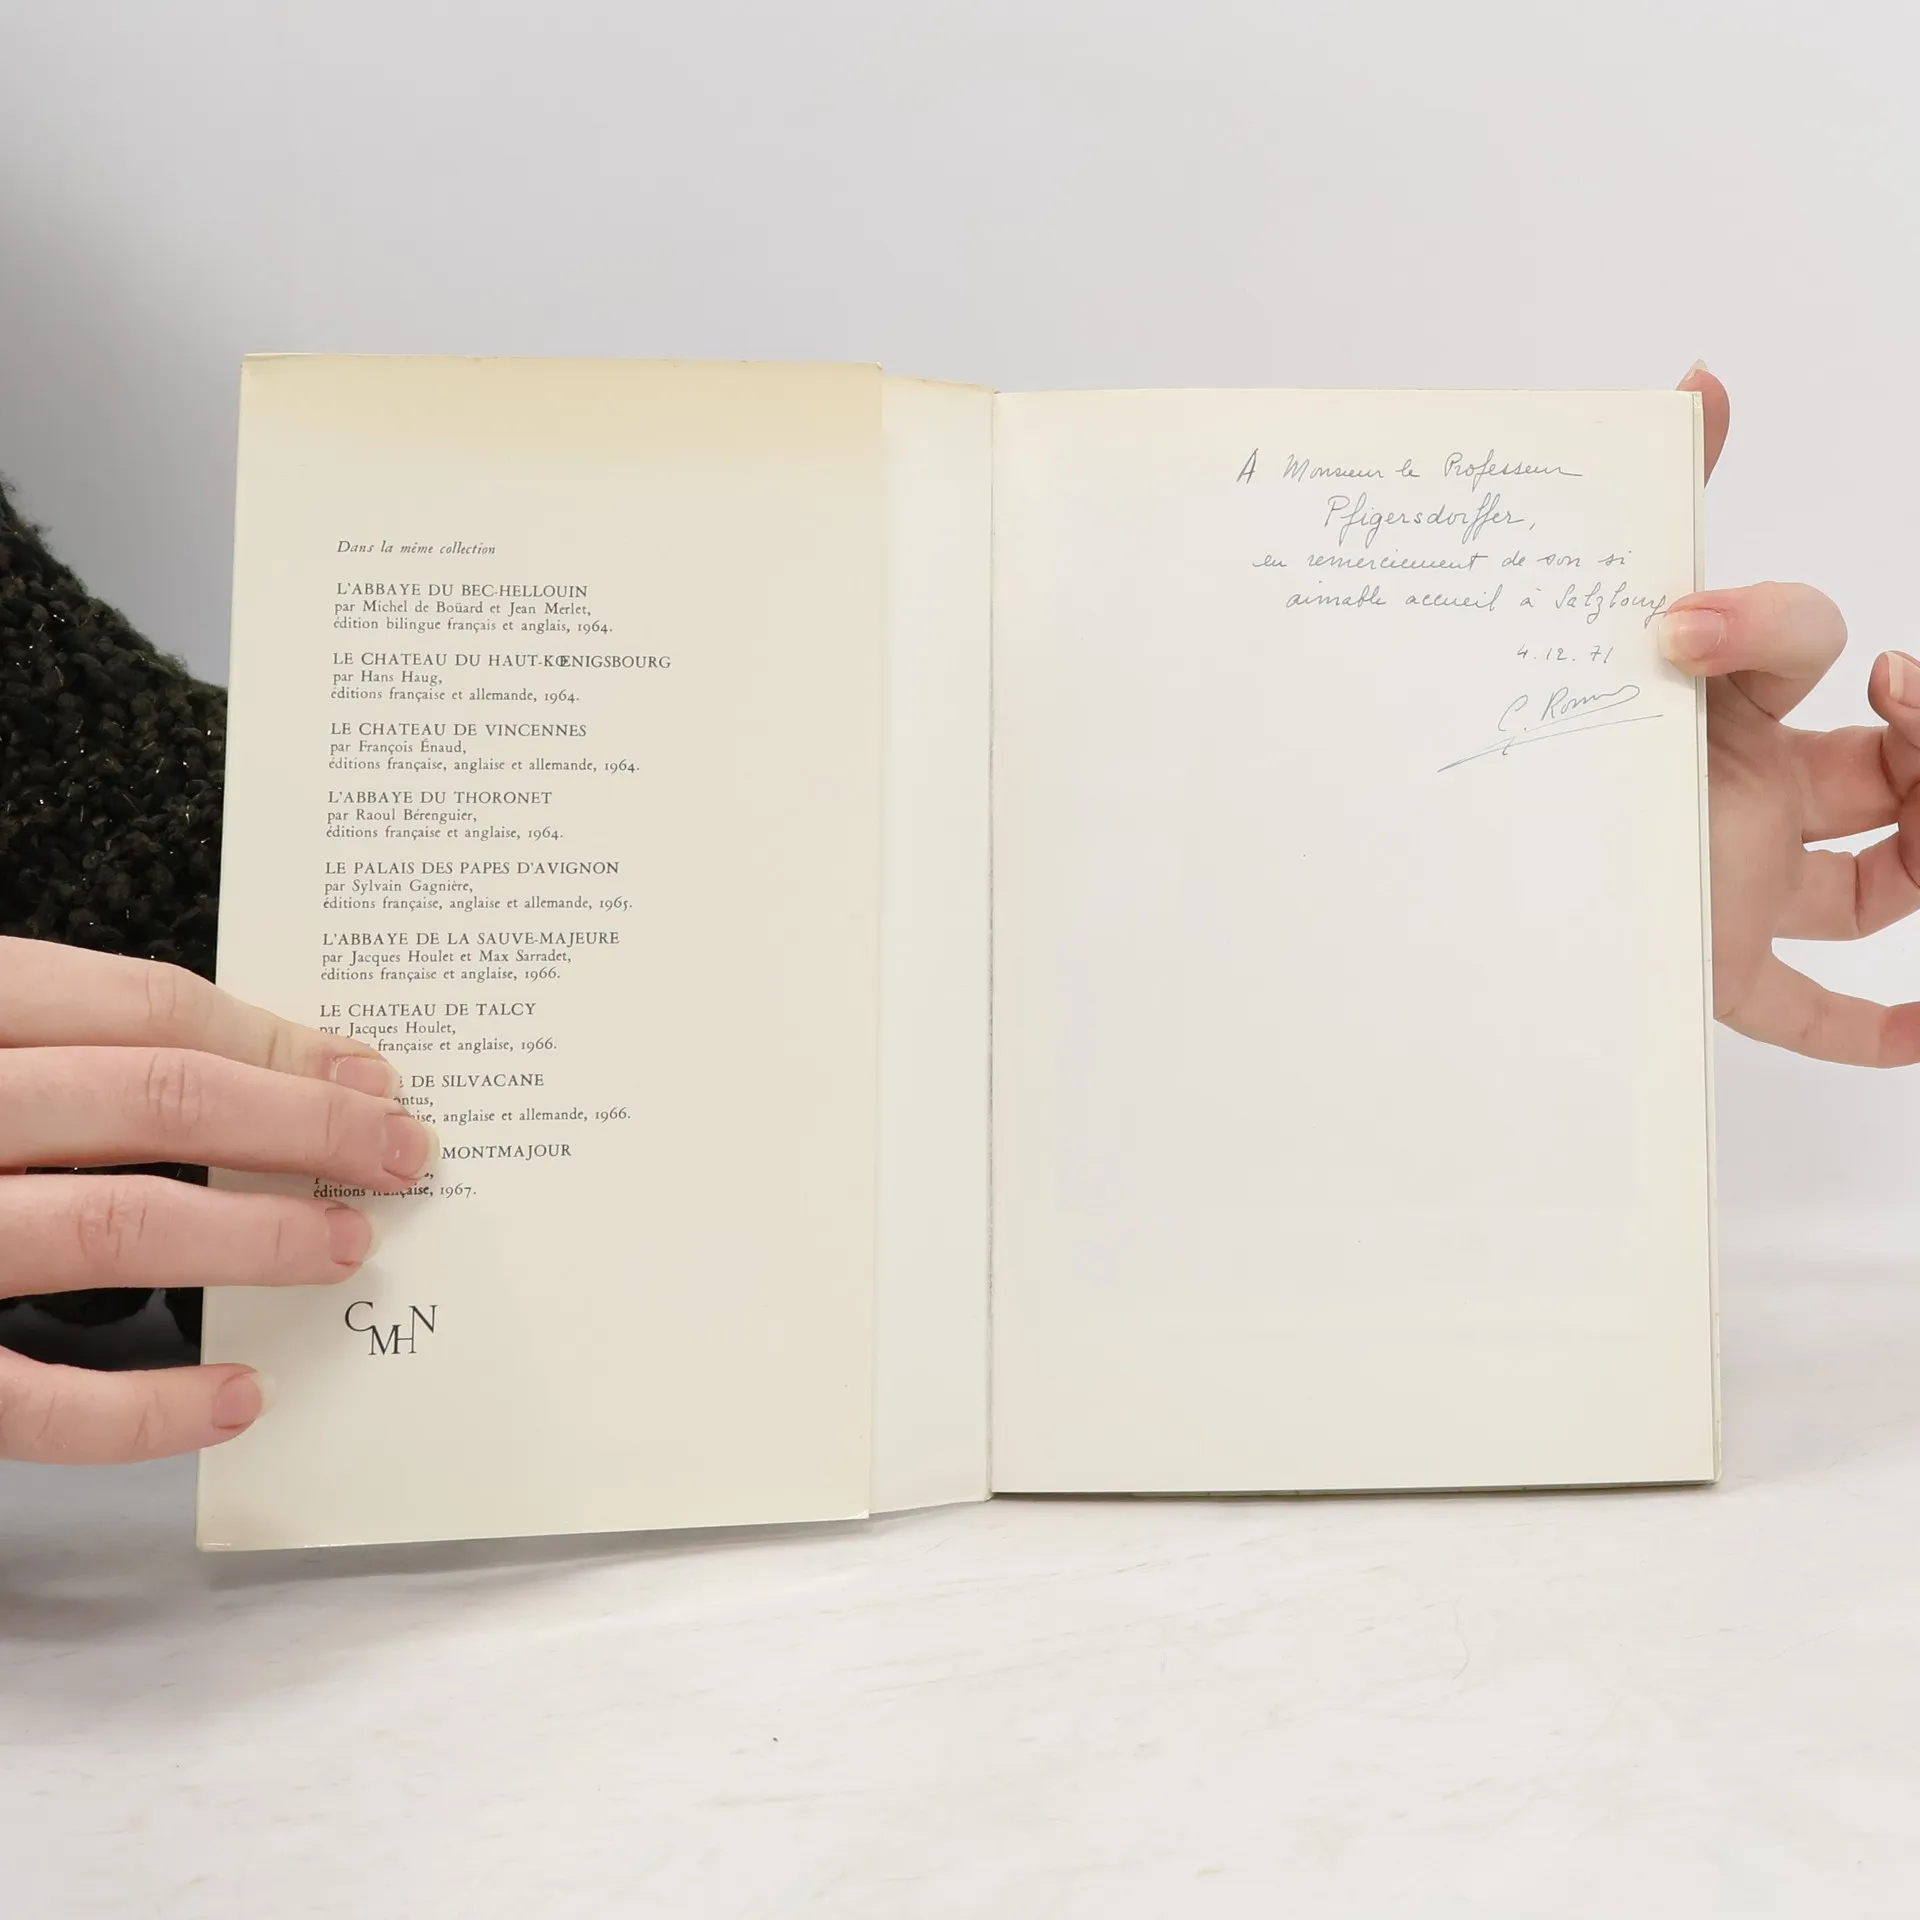 Dans la même collection
L'ABBAYE DU BEC-HELLOUIN
par Michel de Boüard et Jean Merlet,
édition bilingue français et anglais, 1964.
LE CHATEAU DU HAUT-KŒNIGSBOURG
par Hans Haug,
éditions française et allemande, 1964.
LE CHATEAU DE VINCENNES
par François Énaud,
éditions française, anglaise et allemande, 1964.
L'ABBAYE DU THORONET
par Raoul Bérenguier,
éditions française et anglaise, 1964.
LE PALAIS DES PAPES D'AVIGNON
par Sylvain Gagnière,
éditions française, anglaise et allemande, 1965.
L'ABBAYE DE LA SAUVE-MAJEURE
par Jacques Houlet et Max Sarradet,
éditions française et anglaise, 1966.
LE CHATEAU DE TALCY
par Jacques Houlet,
française et anglaise, 1966.
DE SILVACANE
anglaise et allemande, 1966.
MONTMAJOUR
éditions 1967.
CMHN
A Monsieur le Professeur
Pfigersdorffer,
en remerciement de son si
aimable accueil à Salzbourg
4.12.71